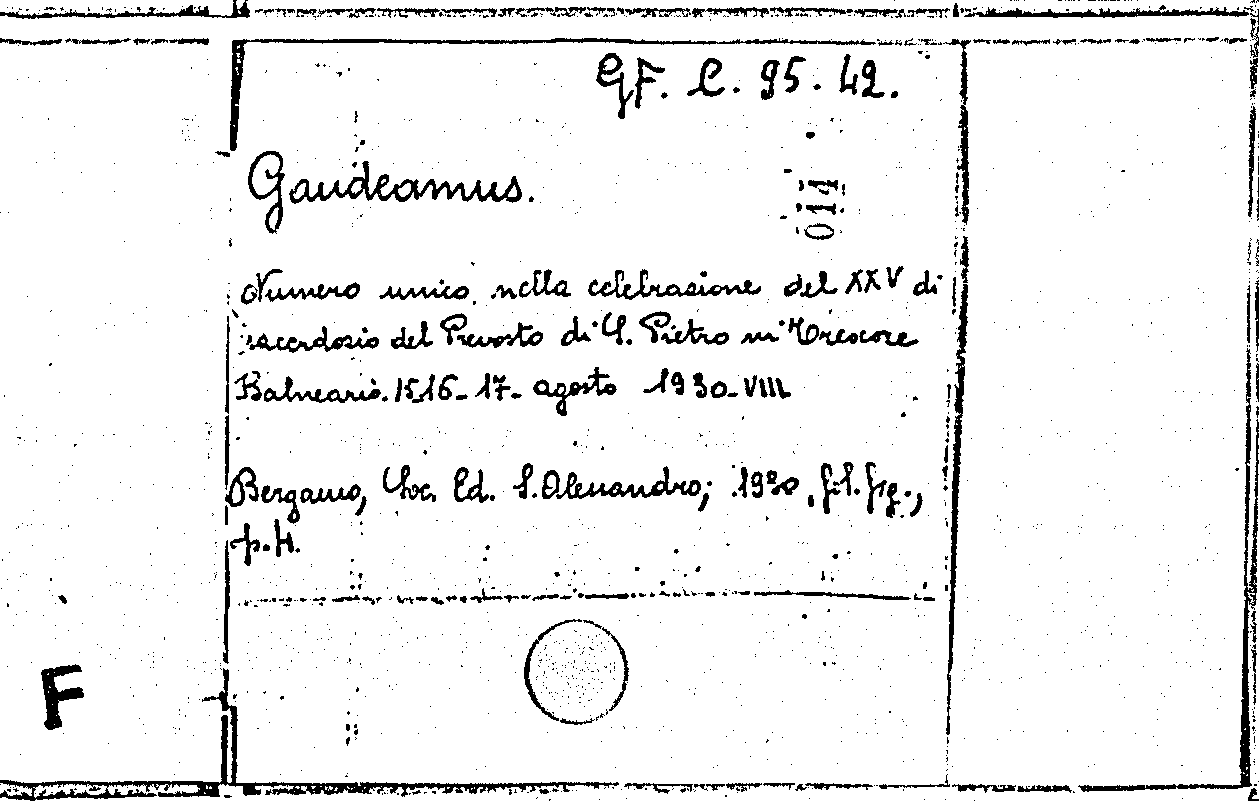 GF. C. 95. 42.
Gaudeamus.
014
Numero unico nella celebrazione del XXV di
sacerdozio del Prevosto di S. Pietro in Trescore
Balneario. 15-16- 17- agosto 1930- VIII
Bergamo, Soc. Ed. S. Alessandro; 1930, fig.,
p. 4.
F